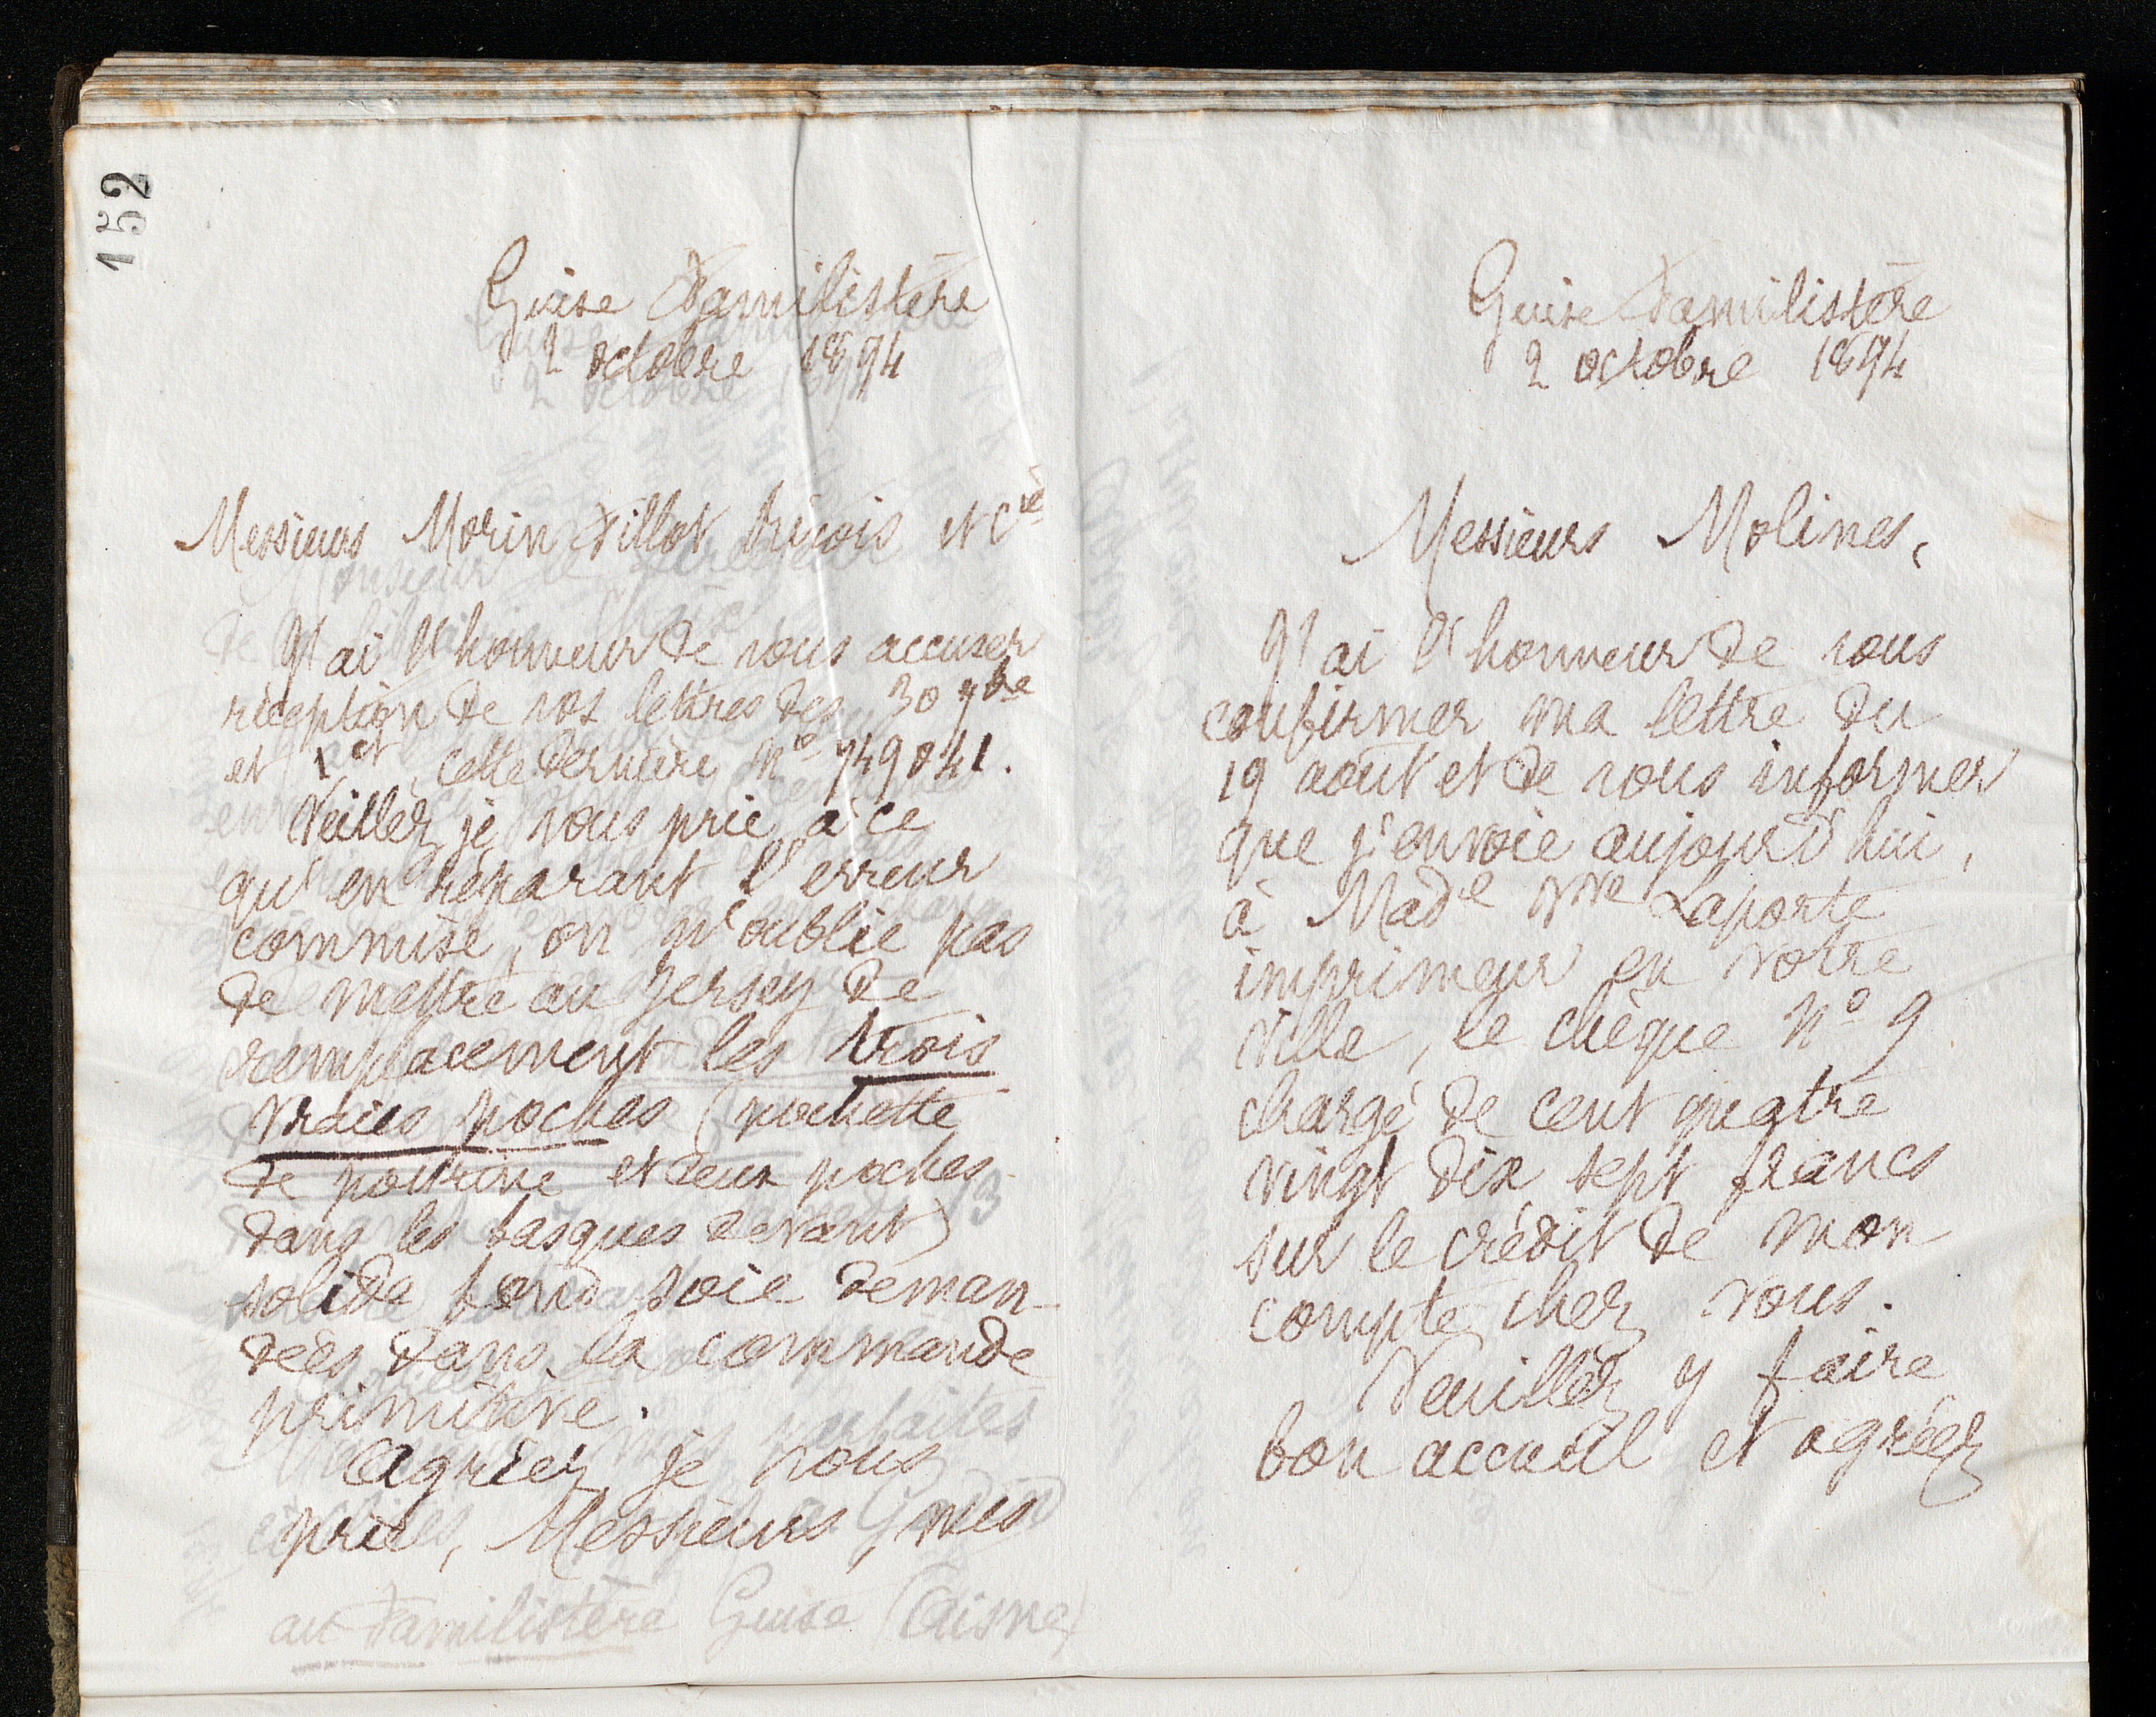 152
Guise Familistère
2 octobre 1894
Messieurs Morin Fillot Bricois et Cie
J'ai l'honneur de vous accuser
réception de vos lettres des 30 7bre
et 1er ct, cette dernière No 749041.
Veillez, je vous prie, à ce
qu'en réparant l'erreur
commise, on n'oublie pas
de mettre au Jersey de
remplacement les trois
vraies poches (pochette
de poitrine et deux poches
dans les basques devant)
solide fond soie deman-
dées dans la commande
primitive.
Agréez, je vous
prie, Messieurs, mes
au Familistère Guise (Aisne)
Guise Familistère
2 octobre 1894
Messieurs Molines,
J'ai l'honneur de vous
confirmer ma lettre du
19 août et de vous informer
que j'envoie aujourd'hui,
à Made Vve Laporte
imprimeur en votre
ville, le chèque No 9
chargé de cent quatre
vingt dix sept francs
sur le crédit de mon
compte chez vous.
Veuillez y faire
bon accueil et agréez